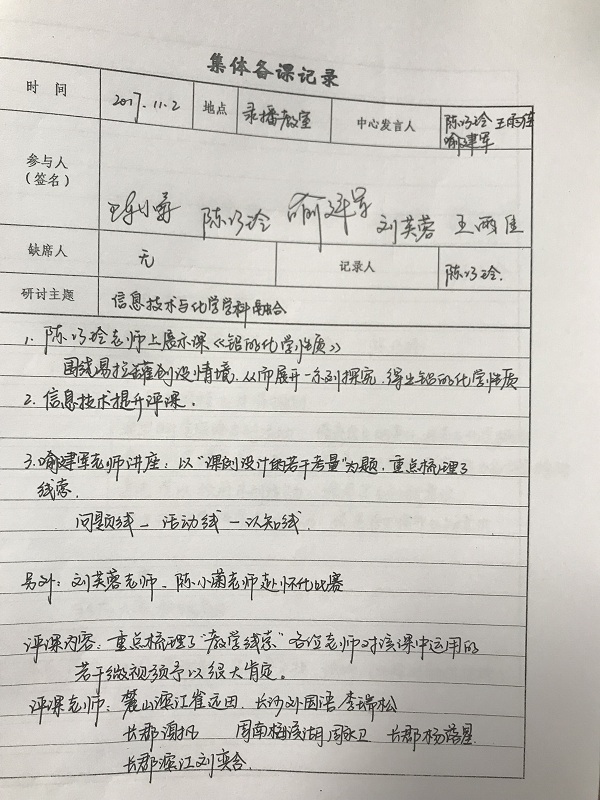 集体备课记录
时 间 2017.11.2 地点 录播教室 中心发言人 陈巧玲 王雨佳 喻建军
参与人(签名) 陈巧玲 喻建军 刘芙蓉 王雨佳
缺席人 无 记录人 陈巧玲.
研讨主题 信息技术与化学学科融合
1. 陈巧玲老师上展示课《铝的化学性质》
围绕易拉罐创设情境,从而展开一系列探究,得出铝的化学性质
2. 信息技术提升评课.
3. 喻建军老师讲座:以“课例设计的若干考量”为题,重点梳理了
线索.
问题线 — 活动线 — 认知线.
另外:刘芙蓉老师、陈小菊老师赴怀化比赛
评课内容:重点梳理了“教学线索”各位老师对该课中运用的
若干微视频予以很大肯定。
评课老师:麓山滨江崔远田. 长沙外国语李瑞松
长郡谢凡 周南梅溪湖周永卫 长郡杨落星
长郡滨江刘奕含.